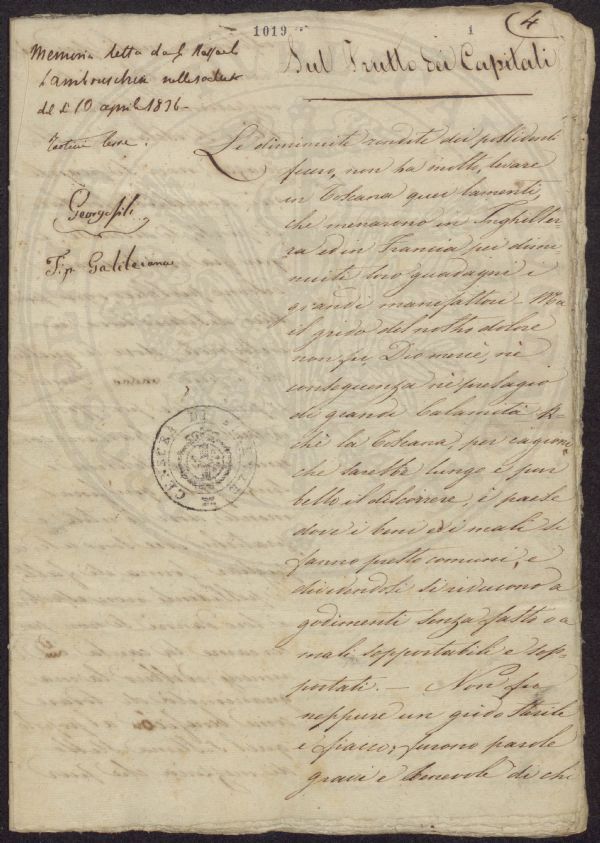 1019
1
4
Memoria letta da G. Raffaele
Lambruschini nell'adunanza
del dì 10 aprile 1836 -
Georgofili
Tip. Galileiana
CENSURA DI FIRENZE
Sul Frutto dei Capitali
Le diminuite rendite dei possidenti
fecero, non ha molto, levare
in Toscana quei lamenti,
che menarono in Inghilter
ra ed in Francia pei dimi
nuiti loro guadagni i
grandi manifattori - Ma
il grido del nostro dolore
non fu, Dio mercè, nè
conseguenza nè presagio
di grande calamità. Per-
chè la Toscana, per cagioni
che sarebbe lungo e pur
bello il discorrere, è paese
dove i beni ed i mali si
fanno presto comuni, e
dividendosi si riducono a
godimenti senza fasto o a
mali sopportabili e sop-
portati. - Non fu
neppure un grido sterile
e fiacco, furono parole
gravi e benevole di chi